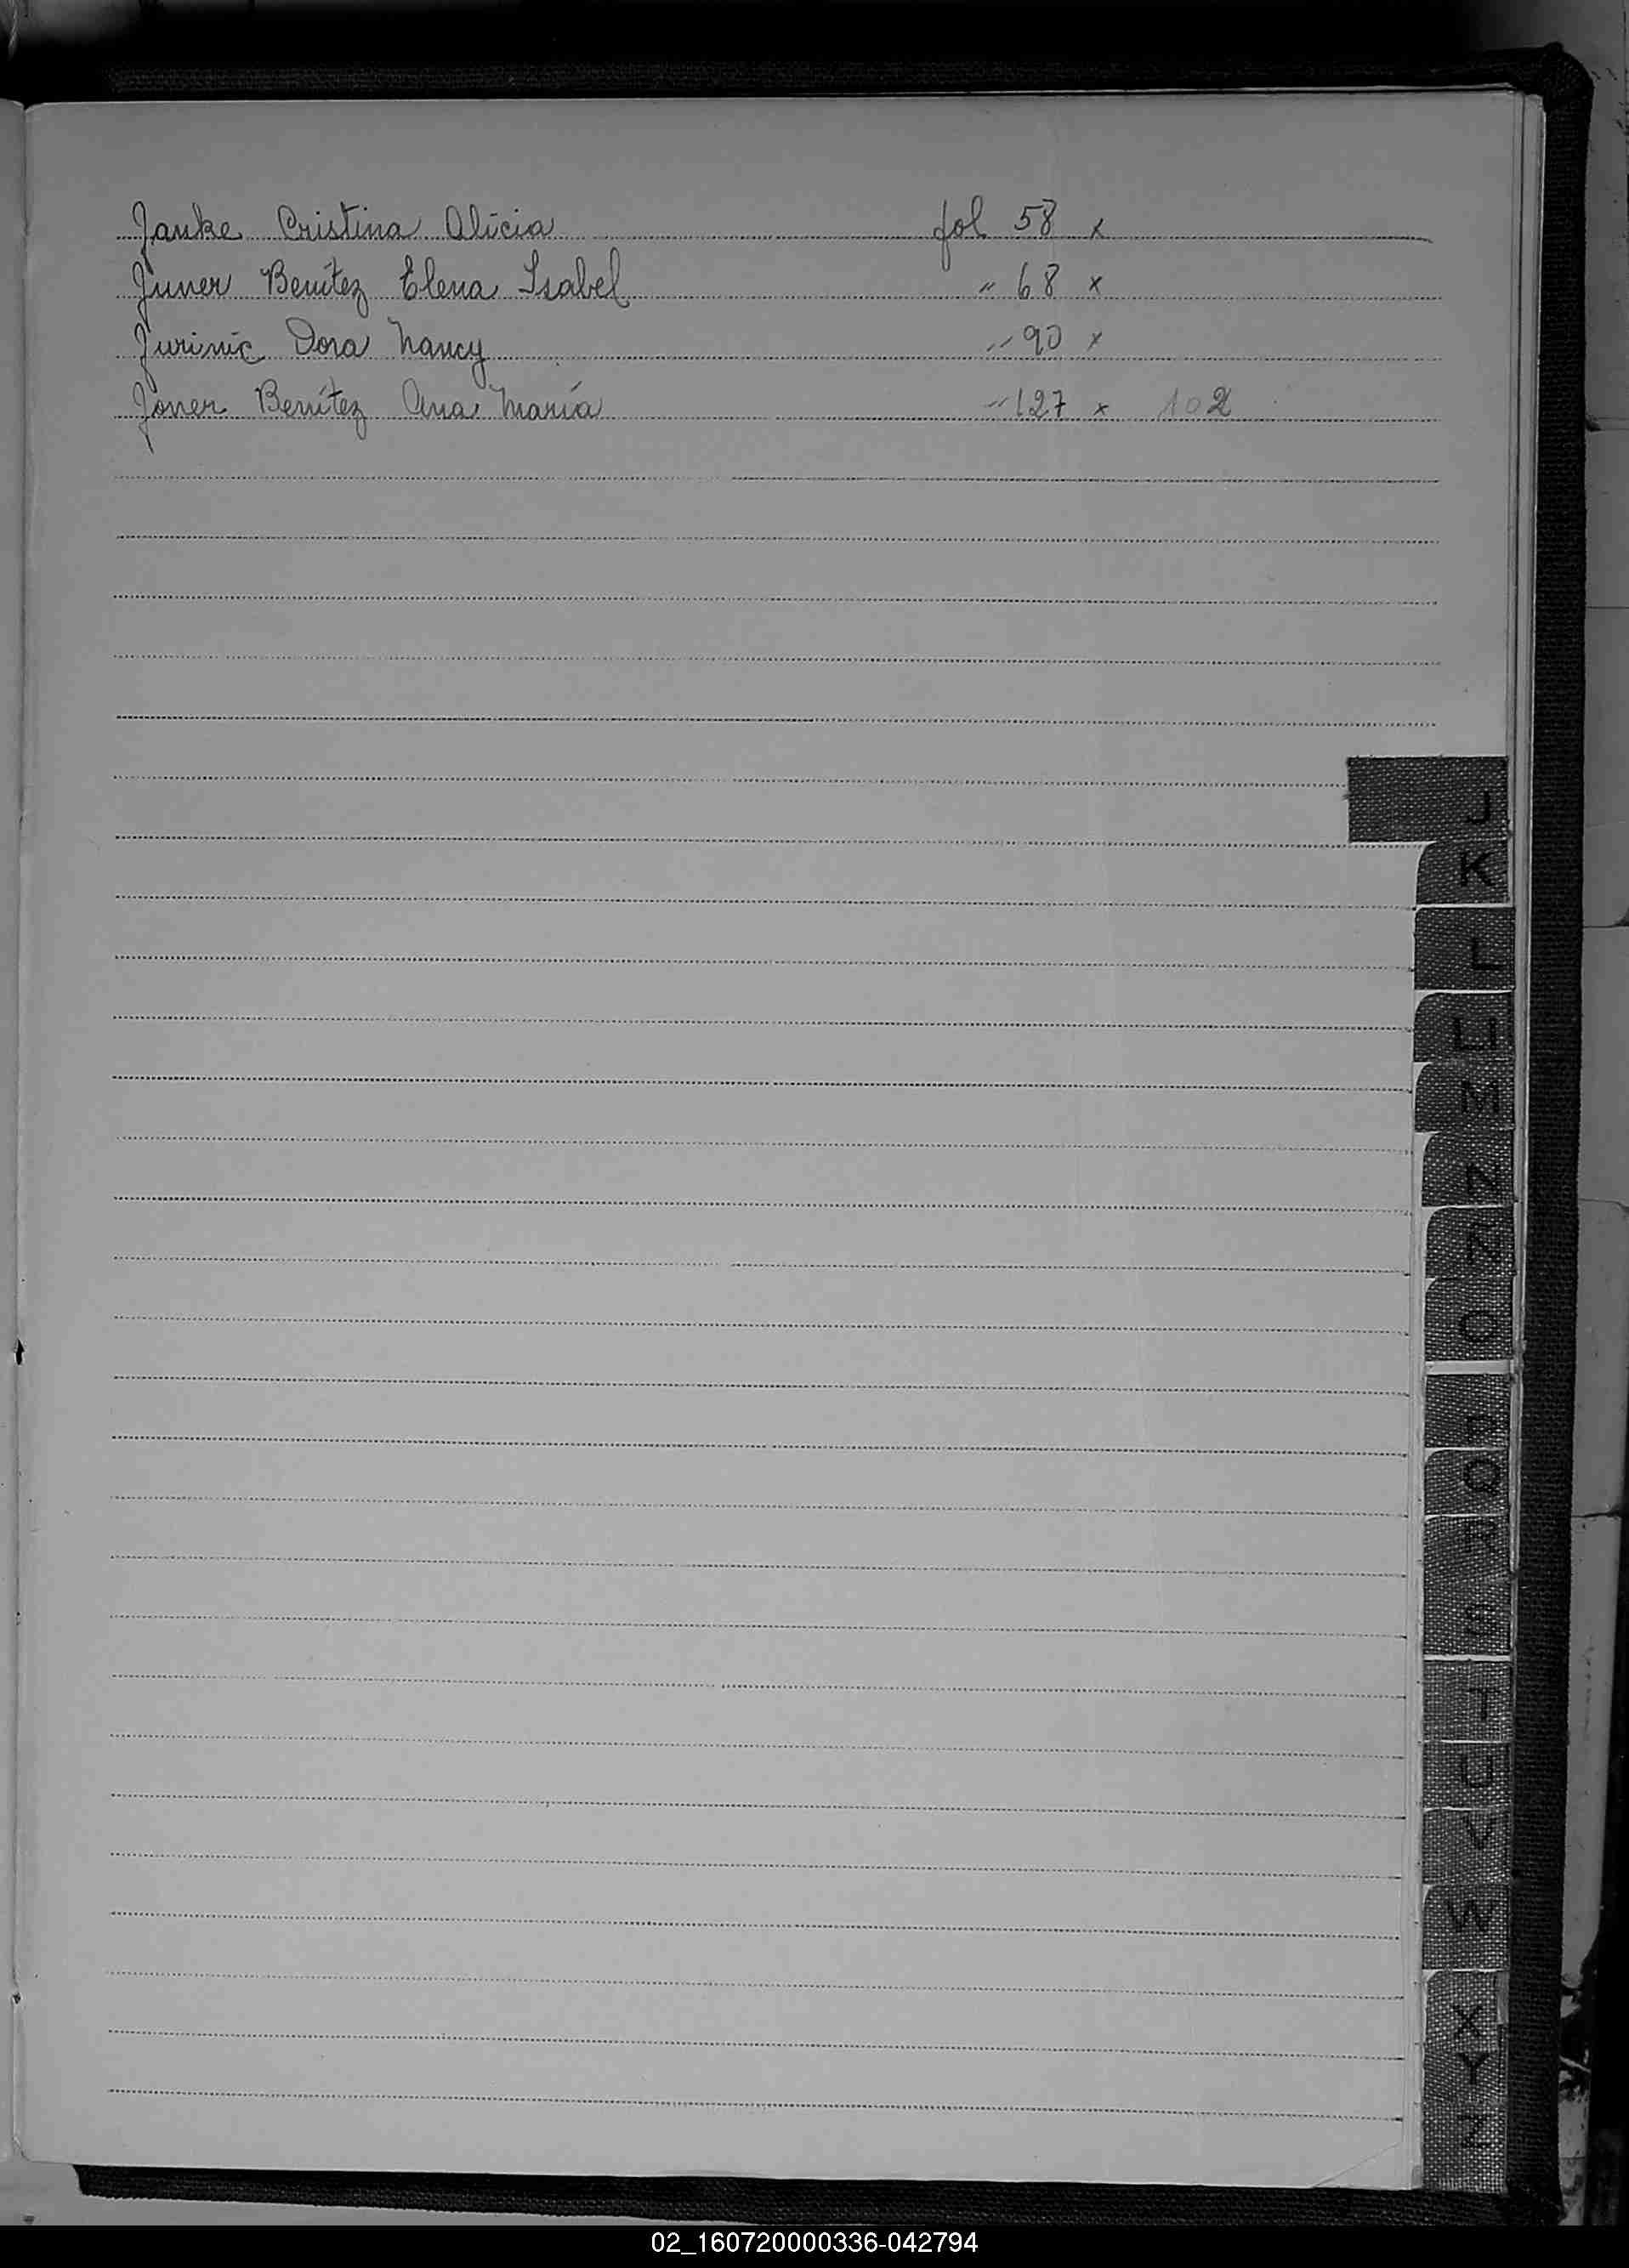 Janke Cristina Alicia fol 58 x
Juner Benítez Elena Isabel " 68 x
Jurinic Dora Nancy " 90 x
Joner Benítez Ana María " 127 x 102
J
K
L
Ll
M
N
Ñ
O
P
Q
R
S
T
U
V
W
X
Y
Z
02_160720000336-042794